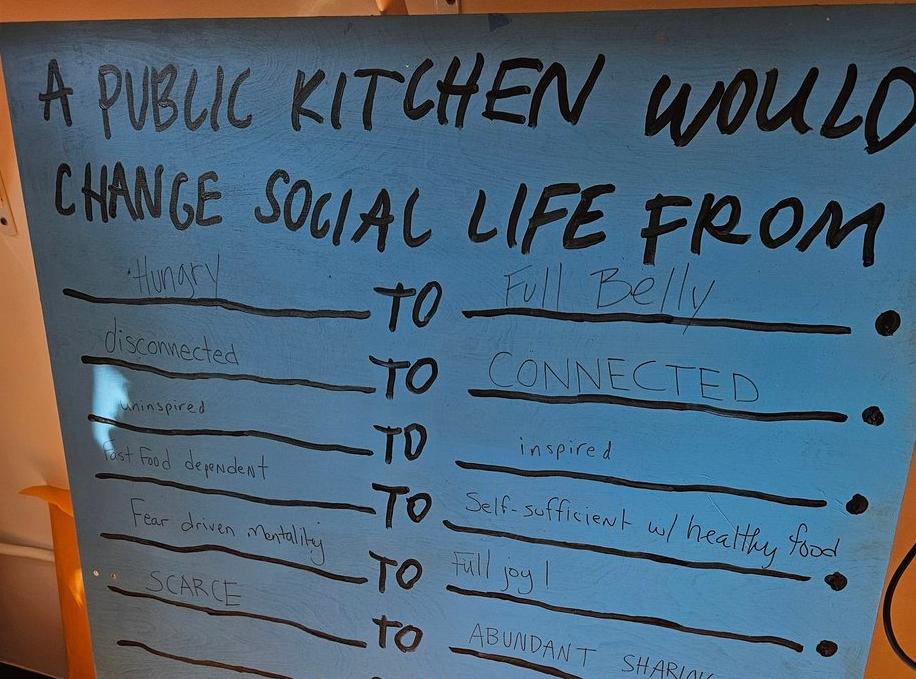 A PUBLIC KITCHEN WOULD
CHANGE SOCIAL LIFE FROM
Hungry TO Full Belly.
disconnected TO CONNECTED.
uninspired TO inspired.
fast Food dependent TO Self-sufficient w/ healthy food.
Fear driven mentality TO Full joy!.
SCARCE TO ABUNDANT SHARING